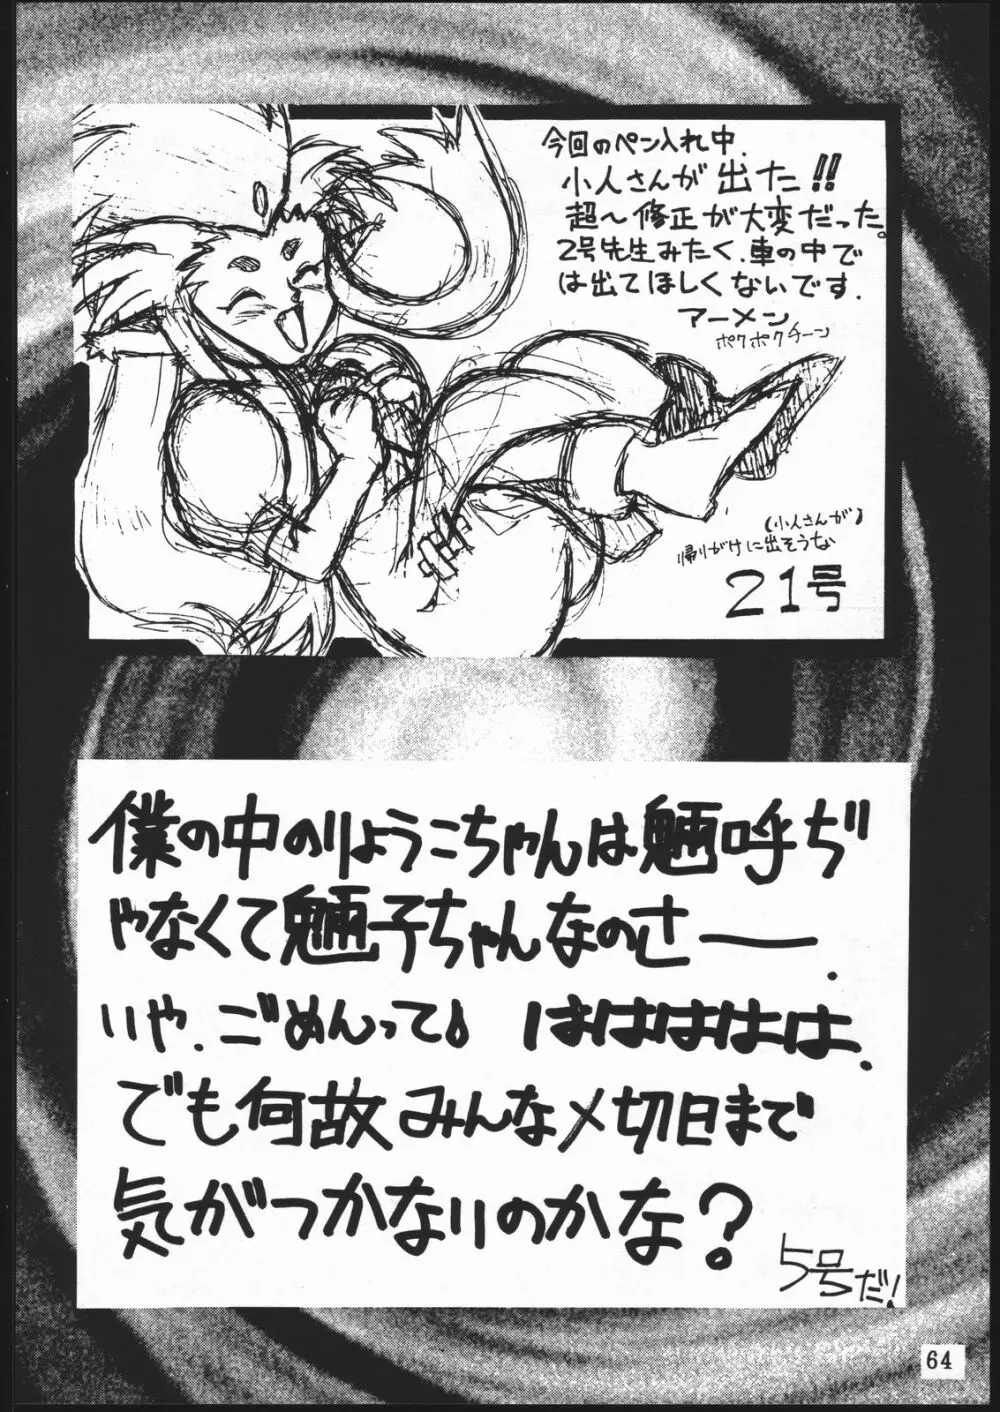 今回のペン入れ中.
小人さんが出た!!
超〜修正が大変だった。
2号先生みたく、車の中で
は出てほしくないです.
アーメン
ポクポクチーン
(小人さんが)
帰りがけに出そうな
21号
僕の中のりょうこちゃんは魎呼ぢ
ゃなくて魎子ちゃんなのさー.
いや.ごめんって。はははははは.
でも何故みんな〆切日まで
気がつかないのかな?
5号だ!
64